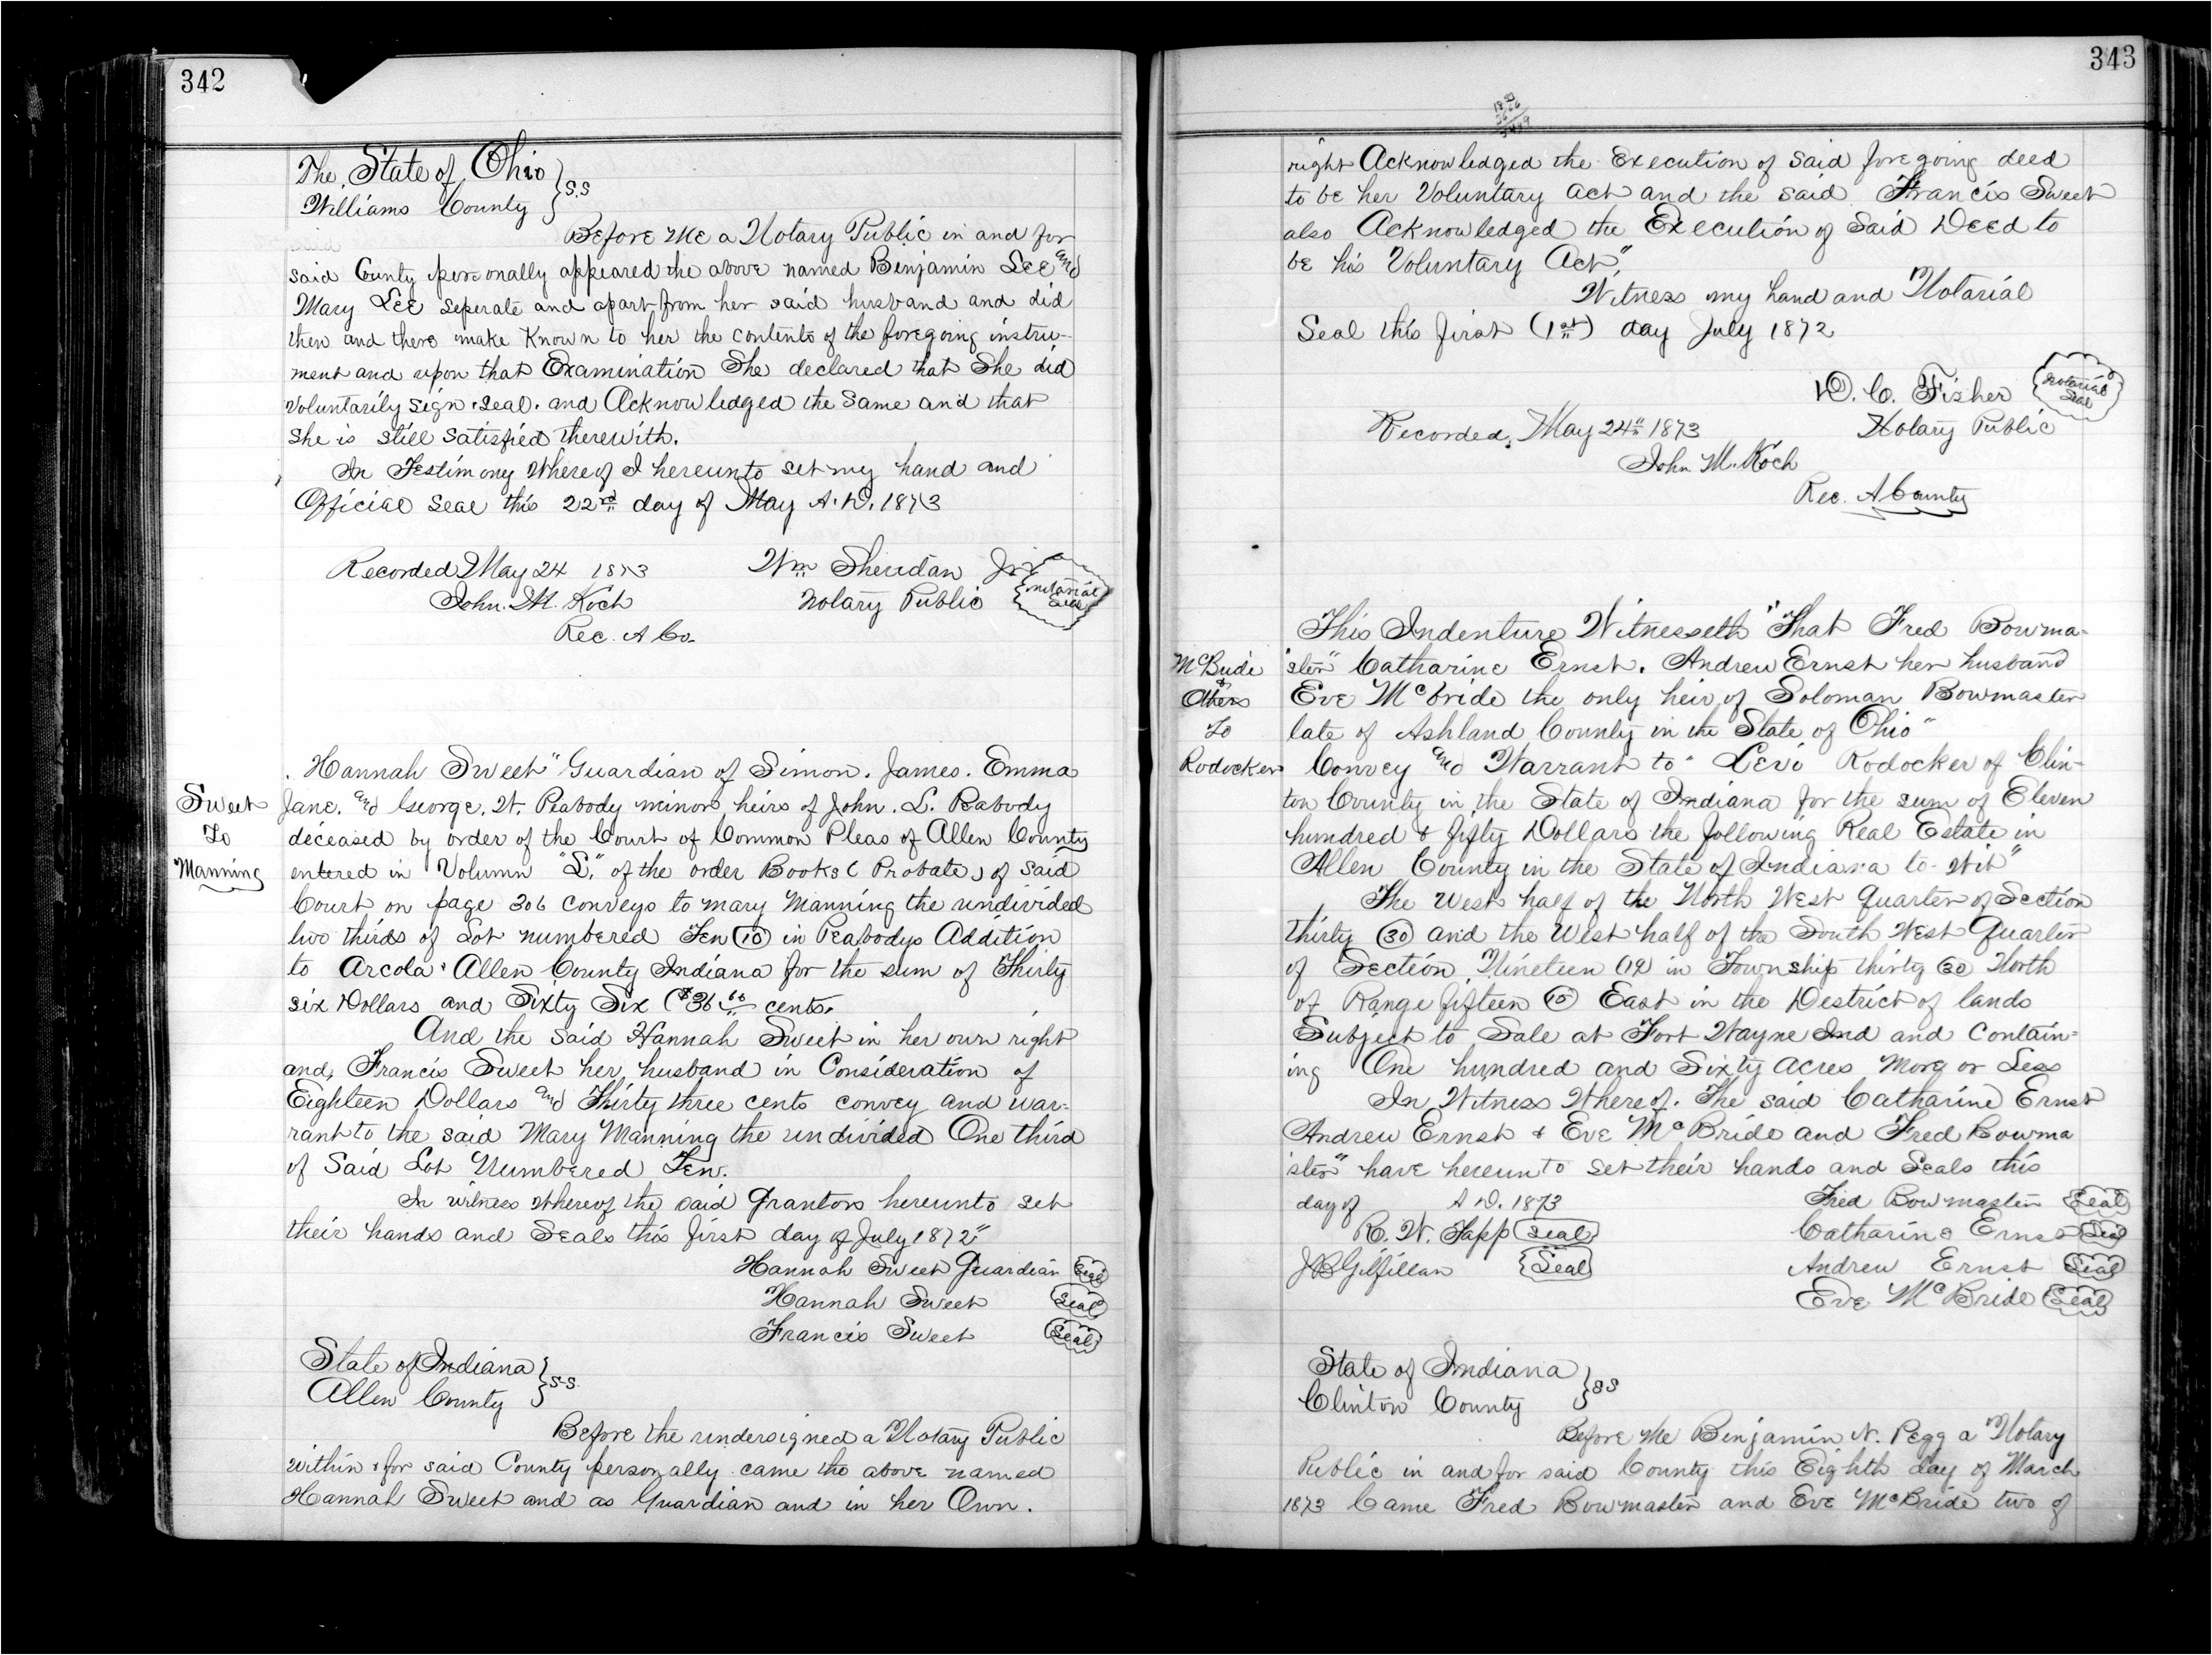 342
The State of Ohio } S.S
Williams County
Before Me a Notary Public in and for
said County personally appeared the above named Benjamin Lee and
Mary Lee seperate and apart from her said husband and did
then and there make Known to her the contents of the foregoing instru-
ment and upon that Examination She declared that She did
Voluntarily sign, seal, and Acknowledged the same and that
she is still satisfied therewith.
In Testimony Whereof I hereunto set my hand and
Official Seal this 22nd day of May A.D. 1873
Recorded May 24 1873 Wm Sheridan Jr
John. M. Koch Notary Public Notarial Seal
Rec. A Co.
Sweet
To
Manning
Hannah Sweet" Guardian of Simon. James. Emma
Jane. and George. W. Peabody minor heirs of John. L. Peabody
deceased by order of the Court of Common Pleas of Allen County
entered in Volumn "L," of the order Books (Probate) of said
Court on page 306 conveys to mary Manning the undivided
two thirds of Lot numbered Ten (10) in Peabodys Addition
to Arcola, Allen County Indiana for the sum of Thirty
six Dollars and Sixty Six ($36 66 cents.
And the said Hannah Sweet in her own right
and, Francis Sweet her husband in Consideration of
Eighteen Dollars and Thirty three cents convey and war-
rant to the said Mary Manning the undivided One third
of Said Lot Numbered Ten.
In witness Whereof the said Grantors hereunto set
their hands and Seals this first day of July 1872"
Hannah Sweet Guardian Seal
Hannah Sweet Seal
Francis Sweet Seal
State of Indiana } S.S.
Allen County
Before the undersigned a Notary Public
within & for said County personally came the above named
Hannah Sweet and as Guardian and in her Own.
343
right Acknowledged the Execution of said foregoing deed
to be her Voluntary act and the said Francis Sweet
also Acknowledged the Execution of Said Deed to
be his Voluntary Act".
Witness my hand and Notarial
Seal this first (1st) day July 1872
D. C. Fisher Notarial Seal
Recorded, May 24th 1873 Notary Public
John M. Koch
Rec. A County
McBride
&
Others
To
Rodocker
This Indenture Witnesseth "That Fred Bowma-
ster" Catharine Ernst. Andrew Ernst her husband
Eve McBride the only heir of Soloman Bowmaster
late of Ashland County in the State of Ohio"
Convey and Warrant to" Levi Rodocker of Clin-
ton County in the State of Indiana for the sum of Eleven
hundred & fifty Dollars the following Real Estate in
Allen County in the State of Indiana to-Wit"
The West half of the North West quarter of Section
Thirty (30) and the West half of the South West Quarter
of Section Nineteen (19) in Township thirty (30) North
of Range fifteen (15) East in the District of lands
Subject to Sale at Fort Wayne Ind and Contain=
ing One hundred and Sixty acres More or Less
In Witness Whereof. The said Catharine Ernst
Andrew Ernst & Eve McBride and Fred Bowma
ster" have hereunto set their hands and Seals this
day of A D. 1873 Fred Bowmaster Seal
R. W. Sapp Seal Catharine Ernst Seal
J B Gilfillan Seal Andrew Ernst Seal
Eve McBride Seal
State of Indiana } SS
Clinton County
Before Me Benjamin N. Pegg a Notary
Public in and for said County this Eighth day of March
1873 Came Fred Bowmaster and Eve McBride two of